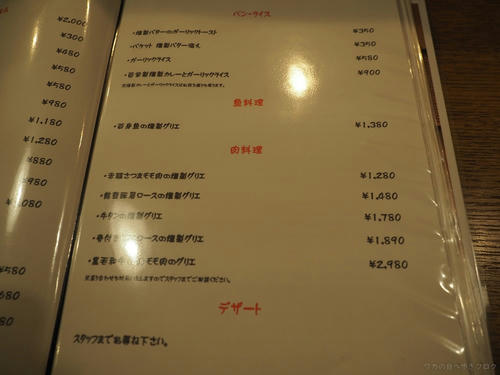 ¥2,000
¥300
¥680
¥580
¥580
¥980
¥1,180
¥1,280
¥880
¥980
¥580
¥680
¥580
パン・ライス
・燻製バターのガーリックトースト ¥350
・バケット 燻製バター添え ¥350
・ガーリックライス ¥580
燻製カレーとガーリックライス ¥900
魚料理
・白身魚の燻製グリエ ¥1,380
肉料理
さつまモモ肉の燻製グリエ ¥1,280
ロースの燻製グリエ ¥1,480
・牛タンの燻製グリエ ¥1,780
・骨付き ロースの燻製グリエ ¥1,890
・黒毛和牛 モモ肉のグリエ ¥2,980
デザート
スタッフまでお尋ね下さい。
ワカの食べ歩きブログ